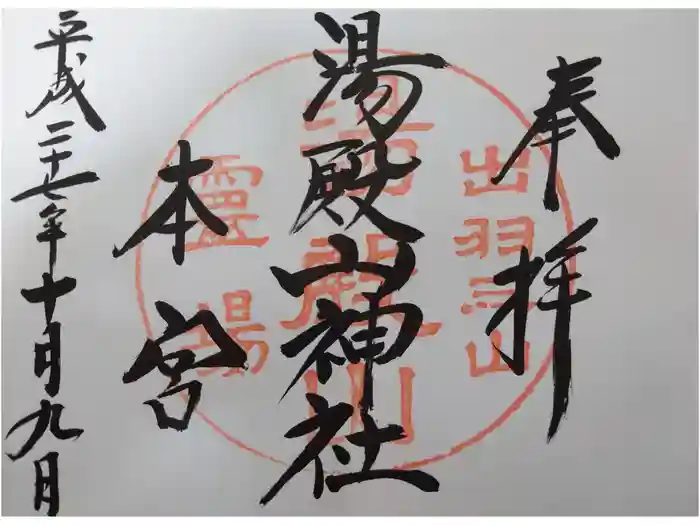 奉拝
出羽三山
湯殿山神社
湯殿山
本宮
靈場
平成二十七年十月九月